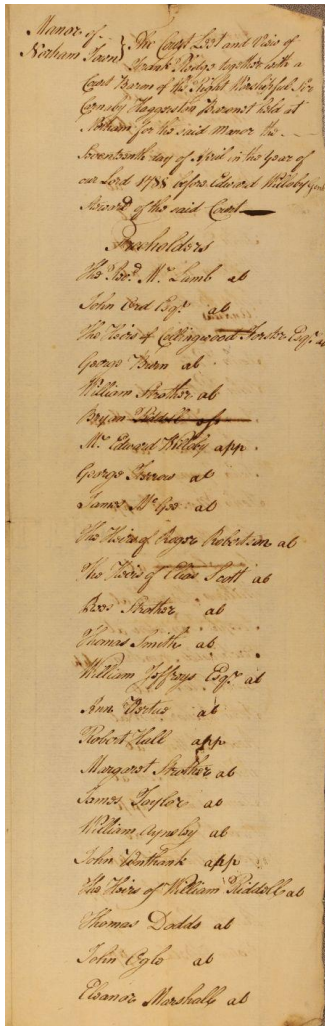 Manor of
Norham Town } The Court Leet and View of
Frank Pledge together with a
Court Baron of the Right Worshipful Sir
Carnaby Haggerston Baronet held at
Norham for the said Manor the
Seventeenth day of April in the Year of
our Lord 1788 before Edward Willoby Gent
Steward of the said Court
Freeholders
The Revd. Mr. Lumb ab
John Ord Esqr. ab
The Heirs of Collingwood Forster Esqr. ab
George Brown ab
William Strother ab
Bryan app
Mr. Edward Willoby app.
George Yarrow ab
James McGee ab
The Heirs of Roger Robertson ab
The Heirs of Elias Scott ab
Strother ab
Thomas Smith ab
William Jeffreys Esqr. ab
Ann Vertue ab
Robert Hall app
Margaret Strother ab
James Taylor ab
William Aynsley ab
John Unthank app
The Heirs of William Riddell ab
Thomas Dodds ab
John Ogle ab
Eleanor Marshall ab